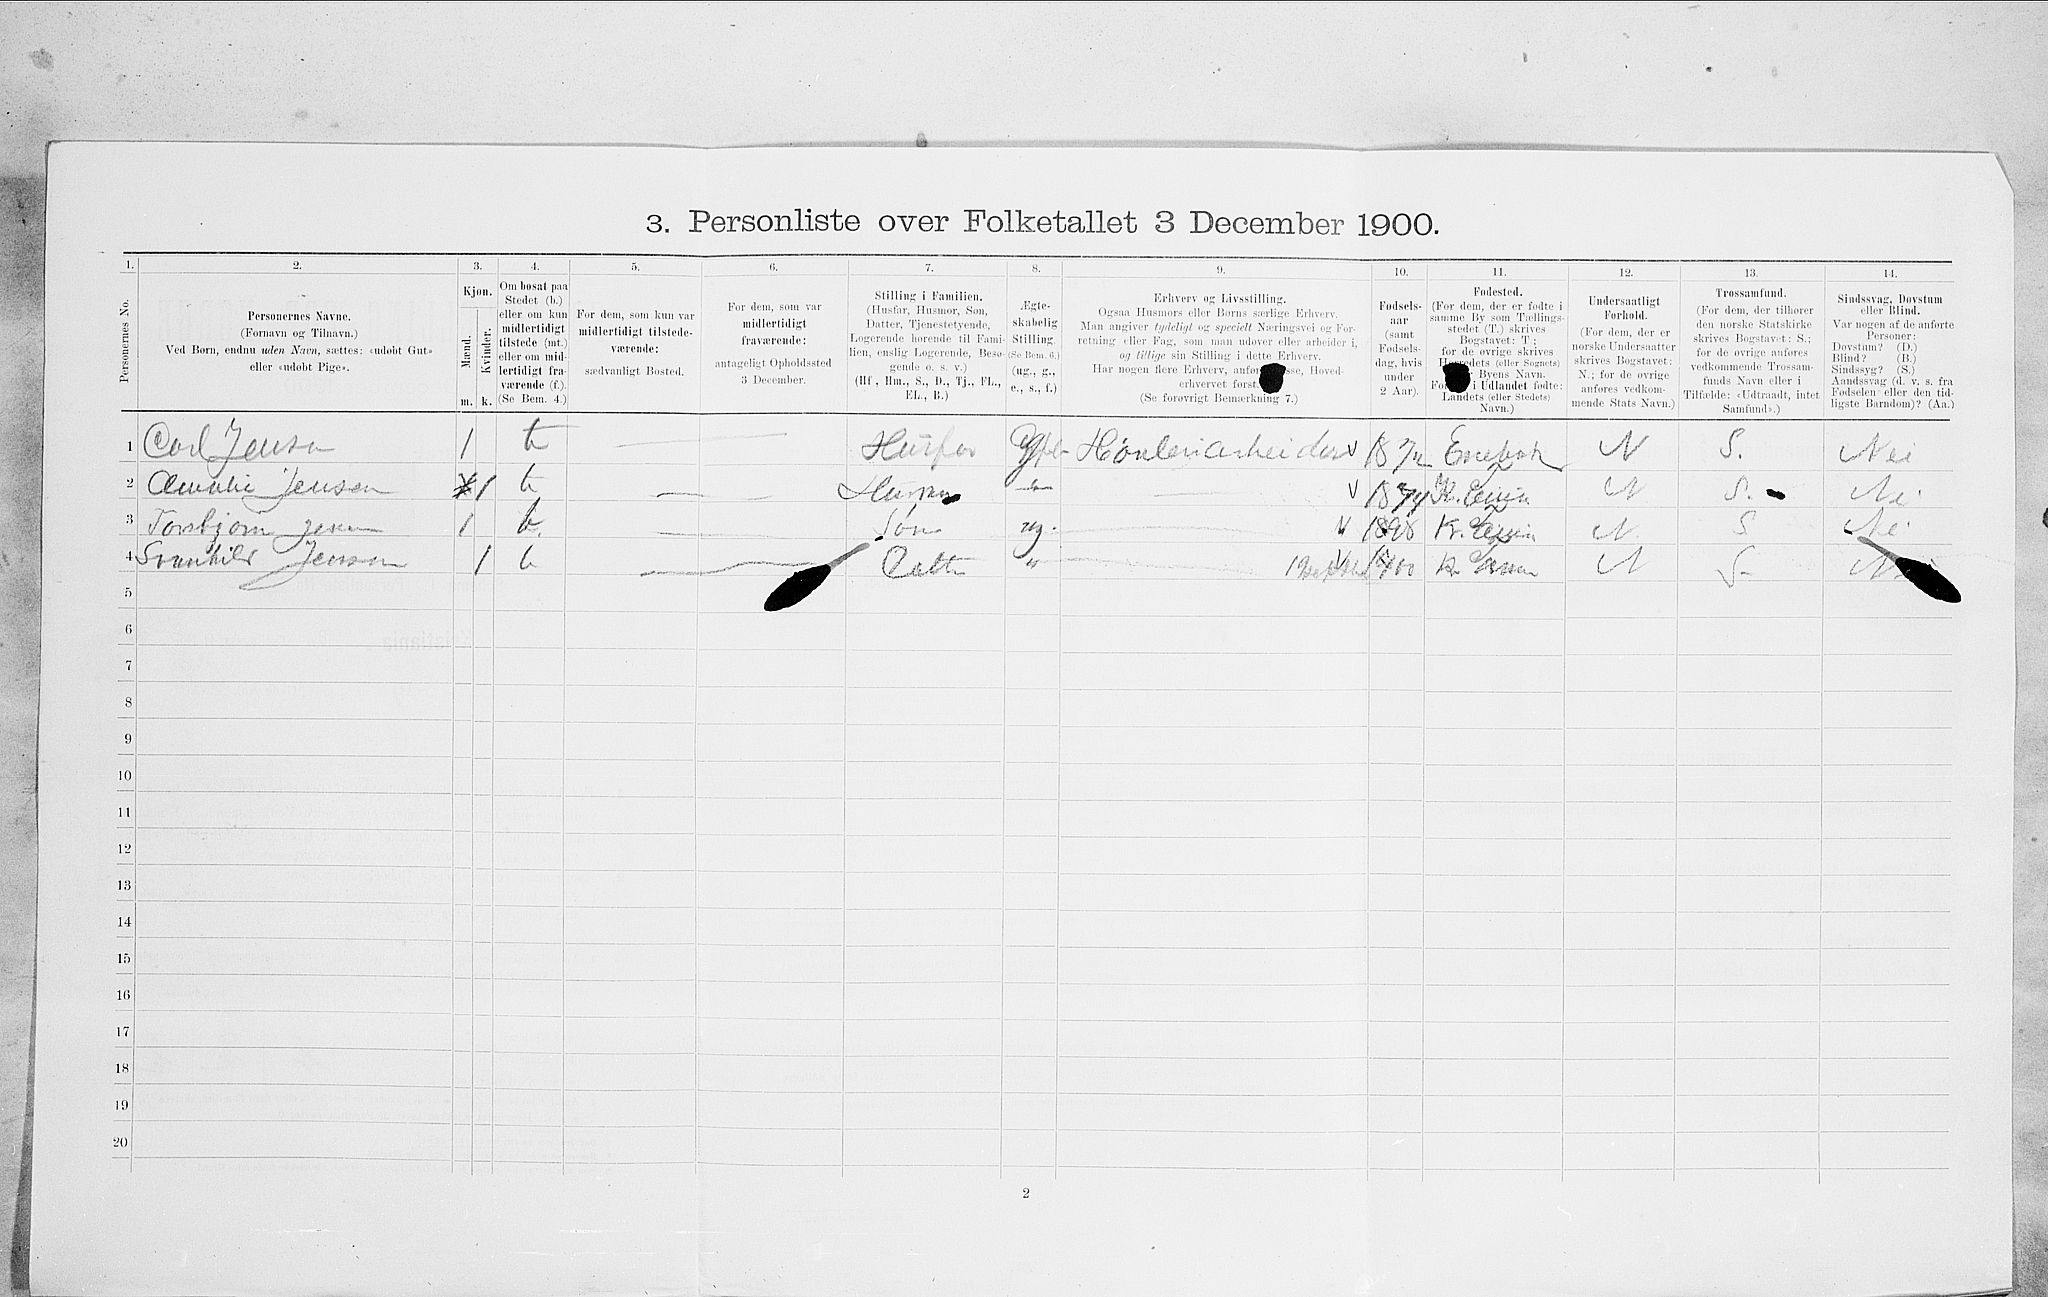 3. Personliste over Folketallet 3 December 1900.
1. 2. 3. 4. 5. 6. 7. 8. 9. 10. 11. 12. 13. 14.
Personernes No.
Personernes Navne.
(Fornavn og Tilnavn.)
Ved Børn, endnu uden Navn, sættes: «udøbt Gut»
eller «udøbt Pige».
Kjøn.
Mænd.
Kvinder.
m. k.
Om bosat paa
Stedet (b.)
eller om kun
midlertidigt
tilstede (mt.)
eller om mid-
lertidigt fra-
værende (f.).
(Se Bem. 4.)
For dem, som kun var
midlertidigt tilstede-
værende:
sædvanligt Bosted.
For dem, som var
midlertidigt
fraværende:
antageligt Opholdssted
3 December.
Stilling i Familien.
(Husfar, Husmor, Søn,
Datter, Tjenestetyende,
Logerende hørende til Fami-
lien, enslig Logerende, Besø-
gende o. s. v.)
(Hf, Hm., S., D., Tj., FL.,
EL., B.)
Ægte-
skabelig
Stilling.
(Se Bem. 6.)
(ug., g.,
e., s., f.)
Erhverv og Livsstilling.
Ogsaa Husmors eller Børns særlige Erhverv.
Man angiver tydeligt og specielt Næringsvei og For-
retning eller Fag, som man udøver eller arbeider i,
og tillige sin Stilling i dette Erhverv.
Har nogen flere Erhverv, Hoved-
erhvervet først.
(Se forøvrigt Bemærkning 7.)
Fødsels-
aar
(samt
Fødsels-
dag, hvis
under
2 Aar).
Fødested.
(For dem, der er fødte i
samme By som Tællings-
stedet (T.) skrives
Bogstavet: T;
for de øvrige skrives
Herredets (eller Sognets)
Byens Navn.
i Udlandet fødte:
Landets (eller Stedets)
Navn.)
Undersaatligt
Forhold.
(For dem, der er
norske Undersaatter
skrives Bogstavet:
N.; for de øvrige
anføres vedkom-
mende Stats Navn.)
Trossamfund.
(For dem, der tilhører
den norske Statskirke
skrives Bogstavet: S.;
for de øvrige anføres
vedkommende Trossam-
funds Navn eller i
Tilfælde: «Udtraadt, intet
Samfund».)
Sindssvag, Døvstum
eller Blind.
Var nogen af de anførte
Personer:
Døvstum? (D.)
Blind? (B.)
Sindssyg? (S.)
Aandssvag (d. v. s. fra
Fødselen eller den tid-
ligste Barndom)? (Aa.)
1 Carl Jensen 1 b Husfar N S. Nei
2 Amalie Jensen 1 b N S. Nei
3 Torbjørn Jensen 1 b. Søn ug. 1898 N. S Nei
4 Svanhild Jensen 1 b N S. Nei
5
6
7
8
9
10
11
12
13
14
15
16
17
18
19
20
2